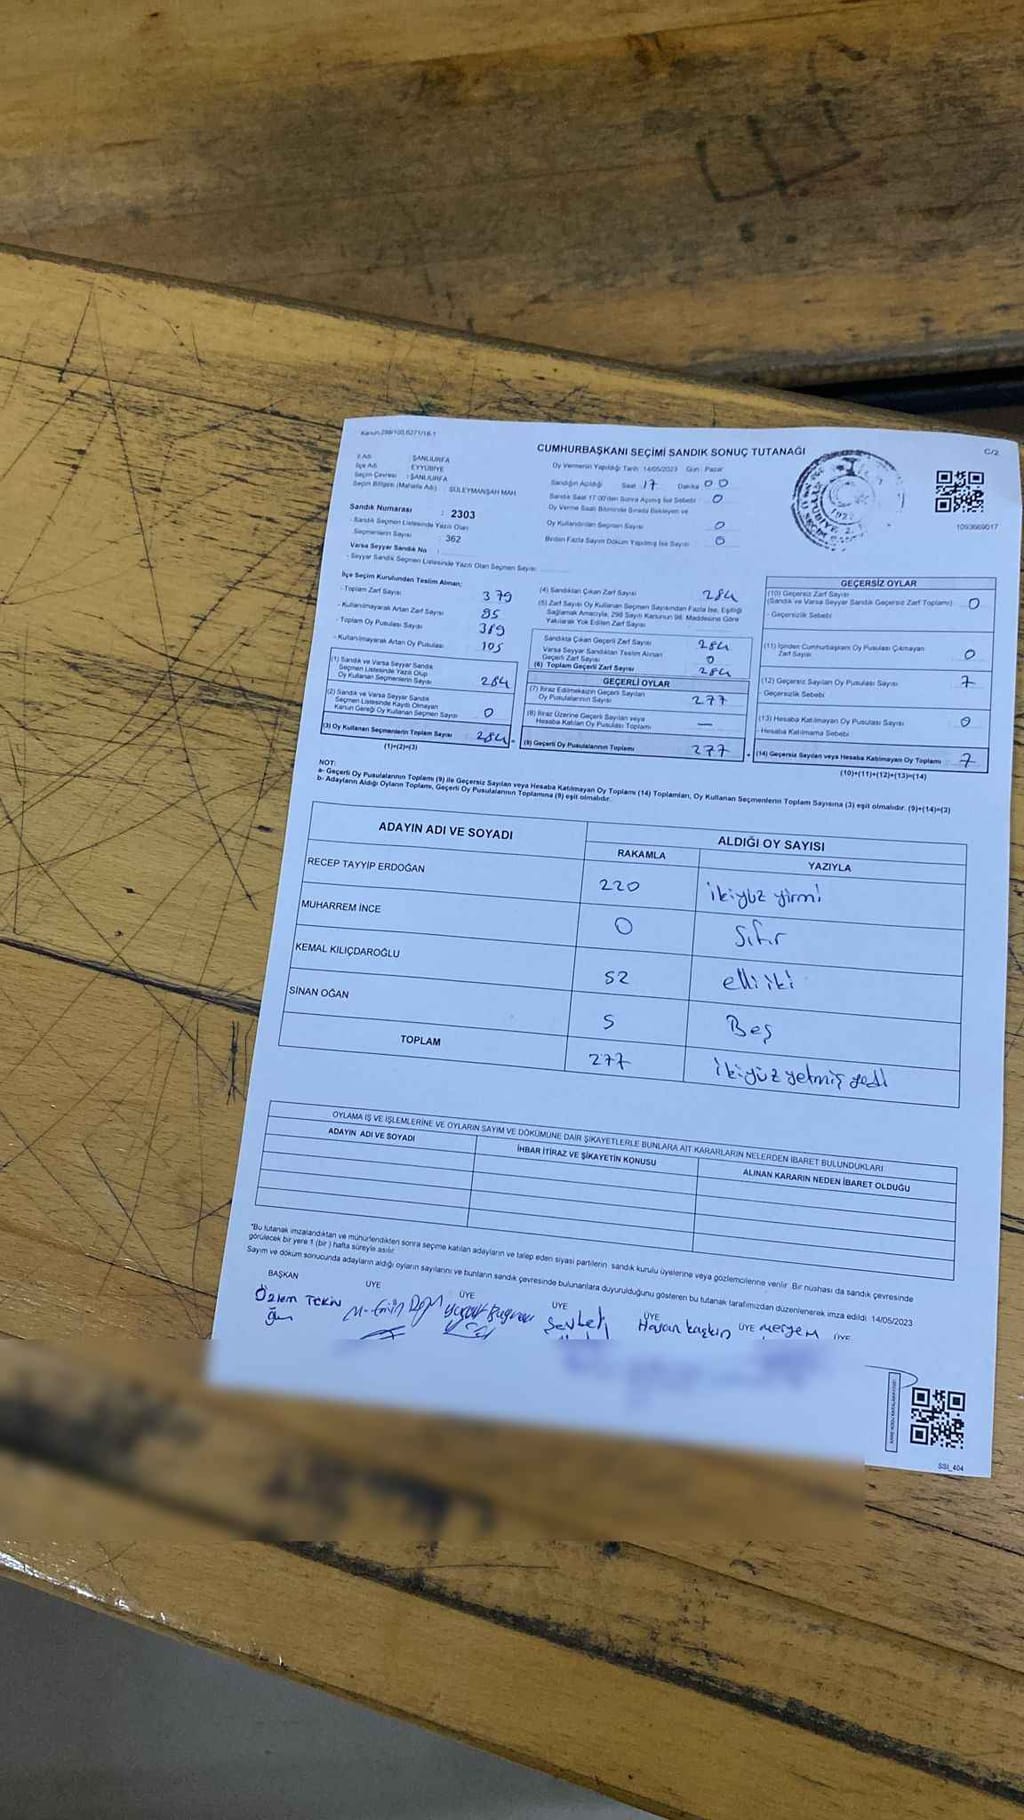 Kanun 298/100,6271/18.1
CUMHURBAŞKANI SEÇİMİ SANDIK SONUÇ TUTANAĞI
C/2
İl Adı : ŞANLIURFA
İlçe Adı : EYYÜBİYE
Seçim Çevresi : ŞANLIURFA
Seçim Bölgesi (Mahalle Adı) : SÜLEYMANŞAH MAH.
Sandık Numarası : 2303
- Sandık Seçmen Listesinde Yazılı Olan
Seçmenlerin Sayısı : 362
Varsa Seyyar Sandık No :
- Seyyar Sandık Seçmen Listesinde Yazılı Olan Seçmen Sayısı
Oy Vermenin Yapıldığı Tarih: 14/05/2023 Gün : Pazar
Sandığın Açıldığı Saat 17 Dakika 00
Sandık Saat 17:00'den Sonra Açılmış İse Sebebi 0
Oy Verme Saati Bitiminde Sırada Bekleyen ve
Oy Kullandırılan Seçmen Sayısı 0
Birden Fazla Sayım Döküm Yapılmış İse Sayısı 0
1093669017
İlçe Seçim Kurulundan Teslim Alınan;
- Toplam Zarf Sayısı 379
- Kullanılmayarak Artan Zarf Sayısı 95
- Toplam Oy Pusulası Sayısı 389
- Kullanılmayarak Artan Oy Pusulası 105
(1) Sandık ve Varsa Seyyar Sandık
Seçmen Listesinde Yazılı Olup
Oy Kullanan Seçmenlerin Sayısı 284
(2) Sandık ve Varsa Seyyar Sandık
Seçmen Listesinde Kaydı Olmayan
Kanun Gereği Oy Kullanan Seçmen Sayısı 0
(3) Oy Kullanan Seçmenlerin Toplam Sayısı 284
(1)+(2)=(3)
(4) Sandıktan Çıkan Zarf Sayısı 284
(5) Zarf Sayısı Oy Kullanan Seçmen Sayısından Fazla İse, Eşitliği
Sağlamak Amacıyla, 298 Sayılı Kanunun 98. Maddesine Göre
Yakılarak Yok Edilen Zarf Sayısı
Sandıkta Çıkan Geçerli Zarf Sayısı 284
Varsa Seyyar Sandıktan Teslim Alınan
Geçerli Zarf Sayısı 0
(6) Toplam Geçerli Zarf Sayısı 284
GEÇERLİ OYLAR
(7) İtiraz Edilmeksizin Geçerli Sayılan
Oy Pusulalarının Sayısı 277
(8) İtiraz Üzerine Geçerli Sayılan veya
Hesaba Katılan Oy Pusulası Toplamı —
(9) Geçerli Oy Pusulalarının Toplamı 277
GEÇERSİZ OYLAR
(10) Geçersiz Zarf Sayısı
(Sandık ve Varsa Seyyar Sandık Geçersiz Zarf Toplamı) 0
- Geçersizlik Sebebi
(11) İçinden Cumhurbaşkanı Oy Pusulası Çıkmayan
Zarf Sayısı 0
(12) Geçersiz Sayılan Oy Pusulası Sayısı 7
- Geçersizlik Sebebi
(13) Hesaba Katılmayan Oy Pusulası Sayısı 0
- Hesaba Katılmama Sebebi
(14) Geçersiz Sayılan veya Hesaba Katılmayan Oy Toplamı 7
(10)+(11)+(12)+(13)=(14)
NOT:
a- Geçerli Oy Pusulalarının Toplamı (9) ile Geçersiz Sayılan veya Hesaba Katılmayan Oy Toplamı (14) Toplamları, Oy Kullanan Seçmenlerin Toplam Sayısına (3) eşit olmalıdır. (9)+(14)=(3)
b- Adayların Aldığı Oyların Toplamı, Geçerli Oy Pusulalarının Toplamına (9) eşit olmalıdır.
ADAYIN ADI VE SOYADI
ALDIĞI OY SAYISI
RAKAMLA YAZIYLA
RECEP TAYYİP ERDOĞAN 220 ikiyüz yirmi
MUHARREM İNCE 0 Sıfır
KEMAL KILIÇDAROĞLU 52 elli iki
SİNAN OĞAN 5 Beş
TOPLAM 277 ikiyüz yetmiş yedi
OYLAMA İŞ VE İŞLEMLERİNE VE OYLARIN SAYIM VE DÖKÜMÜNE DAİR ŞİKAYETLERLE BUNLARA AİT KARARLARIN NELERDEN İBARET BULUNDUKLARI
ADAYIN ADI VE SOYADI
İHBAR İTİRAZ VE ŞİKAYETİN KONUSU
ALINAN KARARIN NEDEN İBARET OLDUĞU
*Bu tutanak imzalandıktan ve mühürlendikten sonra seçime katılan adayların ve talep eden siyasi partilerin sandık kurulu üyelerine veya gözlemcilerine verilir. Bir nüshası da sandık çevresinde
görülecek bir yere 1 (bir) hafta süreyle asılır.
Sayım ve döküm sonucunda adayların aldığı oyların sayılarını ve bunların sandık çevresinde bulunanlara duyurulduğunu gösteren bu tutanak tarafımızdan düzenlenerek imza edildi. 14/05/2023
BAŞKAN ÜYE ÜYE ÜYE ÜYE ÜYE ÜYE
Özlem TEKİN
Hasan Keskin
Meryem
SSI_404